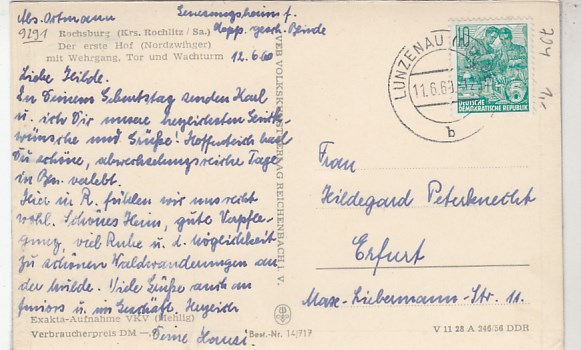 Abs. Ortmann
Genesungsheim f.
9291 Rochsburg (Krs. Rochlitz / Sa.)
Der erste Hof (Nordzwinger)
mit Wehrgang, Tor und Wachturm
12.6.60
Liebe Hilde.
Zu Deinem Geburtstag senden Karl
u. ich Dir unsere herzlichsten Glück-
wünsche und Grüße! Hoffentlich hast
Du schöne, abwechslungsreiche Tage
in Bln. verlebt.
Hier in R. fühlen wir uns recht
wohl. Schönes Heim, gute Verpfle-
gung, viel Ruhe u. d. Möglichkeit
zu schönen Waldwanderungen an
der Mulde. Viele Grüße auch an
juniors u. im Geschäft. Herzlich
Deine Hansi.
Exakta-Aufnahme VKV (Mehlig)
Verbraucherpreis DM —
Best.-Nr. 14/717
VEB VOLKSKUNSTVERLAG REICHENBACH I. V.
LUNZENAU
11.6.60
b
10
DEUTSCHE
DEMOKRATISCHE REPUBLIK
Frau
Hildegard Peterknecht
Erfurt
Max-Liebermann-Str. 11.
V 11 28 A 246/56 DDR